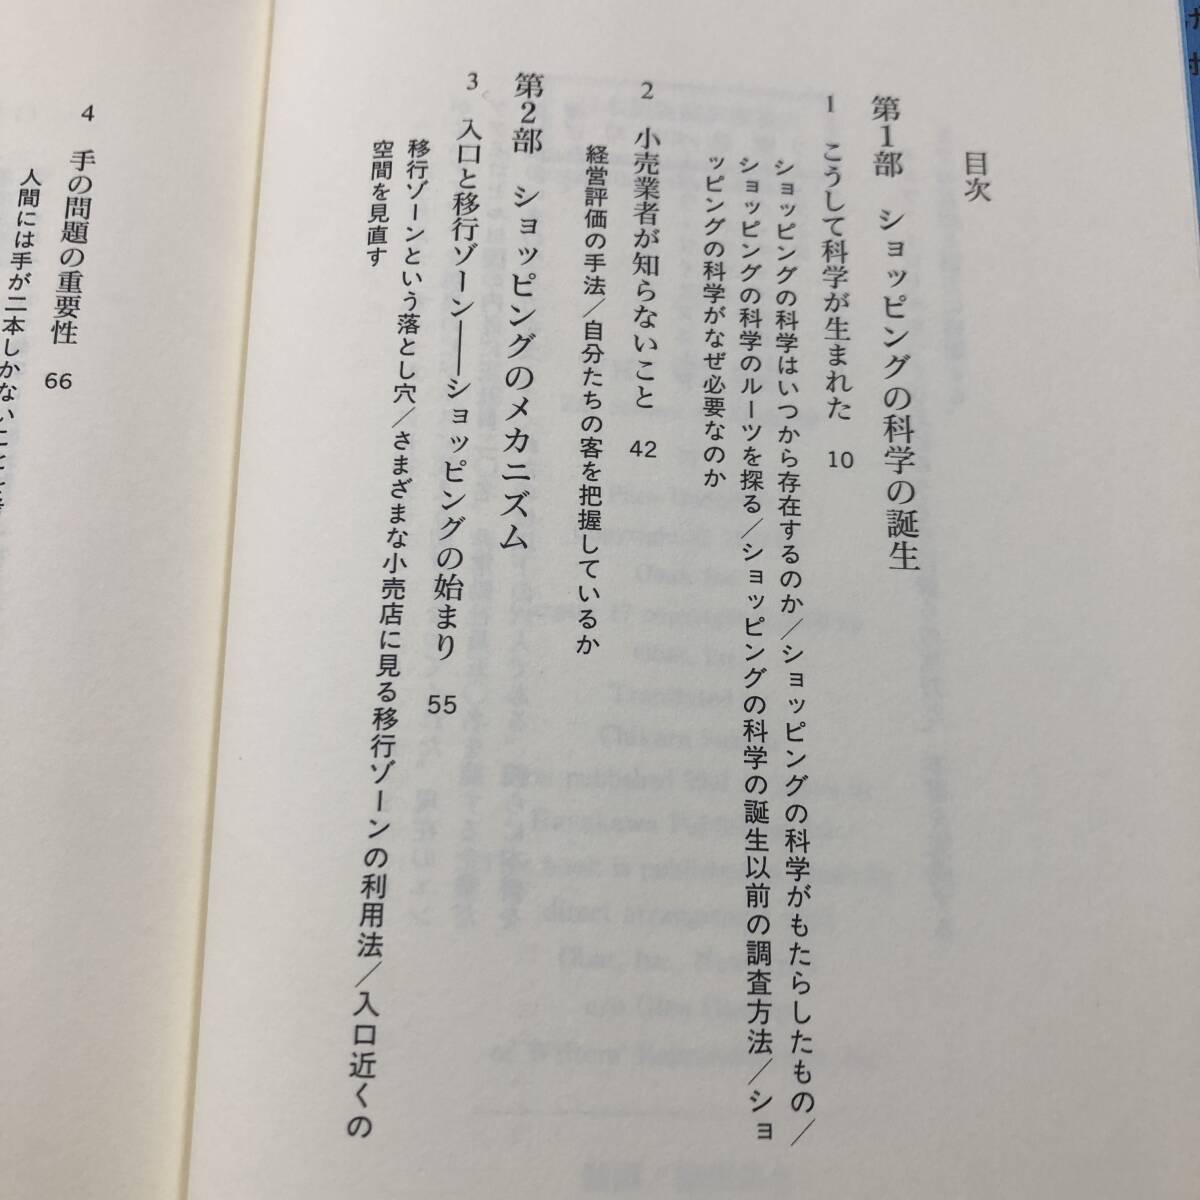 目次
第1部 ショッピングの科学の誕生
1 こうして科学が生まれた 10
ショッピングの科学はいつから存在するのか/ショッピングの科学がもたらしたもの/
ショッピングの科学のルーツを探る/ショッピングの科学の誕生以前の調査方法/ショ
ッピングの科学がなぜ必要なのか
2 小売業者が知らないこと 42
経営評価の手法/自分たちの客を把握しているか
第2部 ショッピングのメカニズム
3 入口と移行ゾーン――ショッピングの始まり 55
移行ゾーンという落とし穴/さまざまな小売店に見る移行ゾーンの利用法/入口近くの
空間を見直す
4 手の問題の重要性 66
人間には手が二本しかない